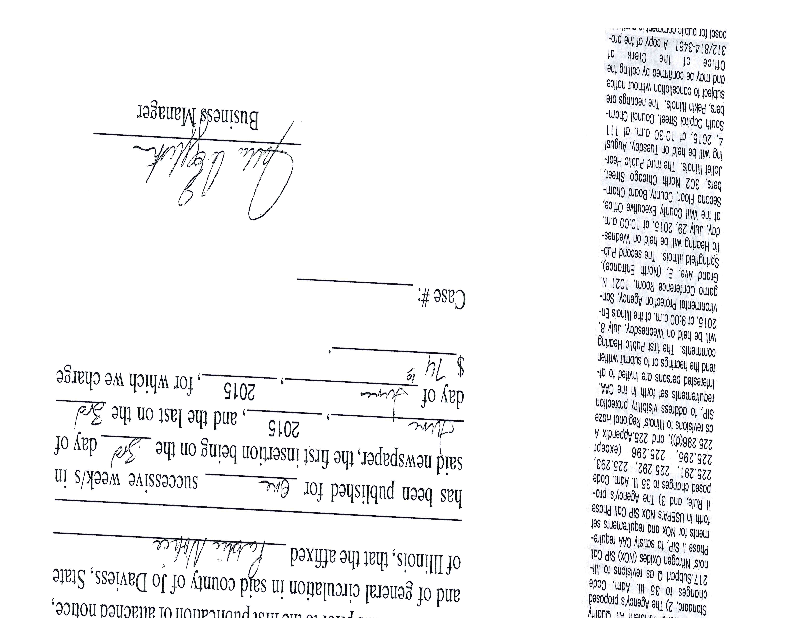 Standard; 2) The Agency's proposed
changes to 35 Ill. Adm. Code
217.Subpart Q as revisions to Illi-
nois' Nitrogen Oxides (NOx) SIP Call
Phase II SIP, to satisfy CAA require-
ments for NOx and requirements set
forth in USEPA's NOx SIP Call Phase
II Rule; and 3) The Agency's pro-
posed changes to 35 Ill. Adm. Code
225.291, 225.292, 225.293,
225.295, 225.296 (except
225.296(d)), and 225.Appendix A
as revisions to Illinois' Regional Haze
SIP, to address visibility protection
requirements set forth in the CAA.
Interested persons are invited to at-
tend the hearings or to submit written
comments. The first Public Hearing
will be held on Wednesday, July 8,
2015, at 9:00 a.m. at the Illinois En-
vironmental Protection Agency, San-
gamo Conference Room, 1021 N.
Grand Ave. E. (North Entrance),
Springfield Illinois. The second Pub-
lic Hearing will be held on Wednes-
day, July 29, 2015, at 10:00 a.m.
at the Will County Executive Office,
Second Floor, County Board Cham-
bers, 302 North Chicago Street,
Joliet Illinois. The third Public Hear-
ing will be held on Tuesday, August
4, 2015, at 10:30 a.m. at 111
South Capitol Street, Council Cham-
bers, Pekin Illinois. The hearings are
subject to cancellation without notice
and may be confirmed by calling the
Office of the Clerk at
312/814-3461. A copy of the pro-
posal for public comment
first publication of attached notice,
and of general circulation in said county of Jo Daviess, State
of Illinois, that the affixed Public Notice
has been published for One successive week/s in
said newspaper, the first insertion being on the 3rd day of
June, 2015, and the last on the 3rd
day of June, 2015, for which we charge
$ 74
Case #:
Business Manager